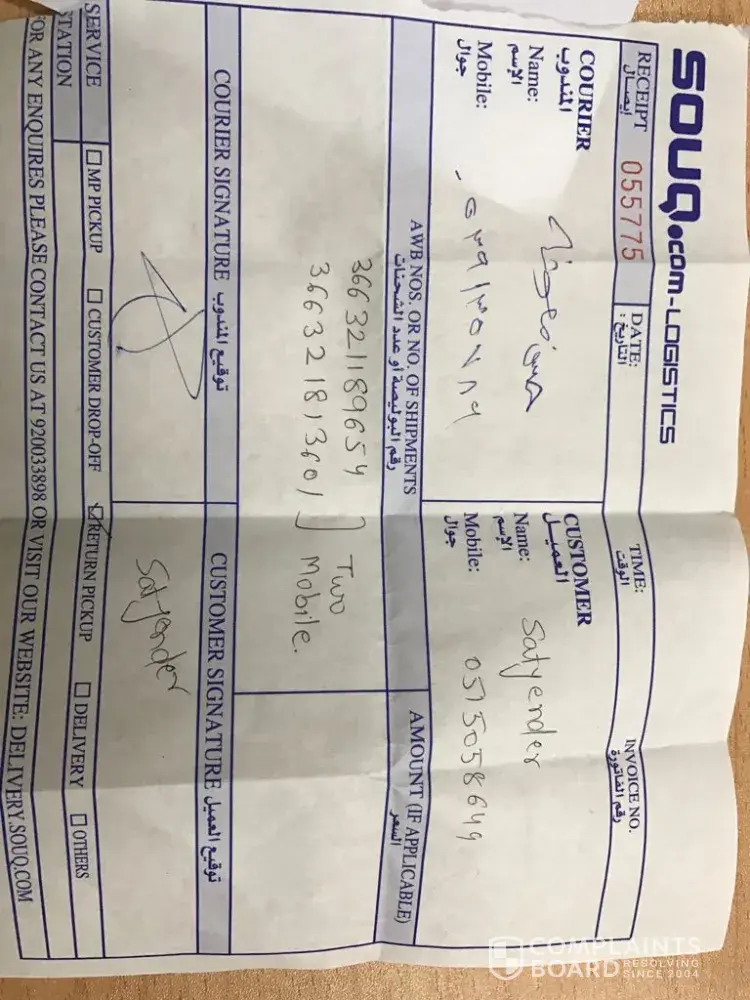 souq.com-LOGISTICS
RECEIPT 055775 DATE: TIME: INVOICE NO.
إيصال التاريخ: الوقت: رقم الفاتورة
COURIER
المندوب
Name:
الإسم
Mobile:
جوال
CUSTOMER
العميل
Name: Satyender
الإسم
Mobile: 0515058649
جوال
AWB NOS. OR NO. OF SHIPMENTS
رقم البوليصة أو عدد الشحنات
AMOUNT (IF APPLICABLE)
السعر
366321189654
366321813601
Two
Mobile.
COURIER SIGNATURE توقيع المندوب
CUSTOMER SIGNATURE توقيع العميل
Satyender
SERVICE MP PICKUP CUSTOMER DROP-OFF RETURN PICKUP DELIVERY OTHERS
STATION
FOR ANY ENQUIRES PLEASE CONTACT US AT 920033898 OR VISIT OUR WEBSITE: DELIVERY.SOUQ.COM
COMPLAINTS
BOARD RESOLVING SINCE 2004